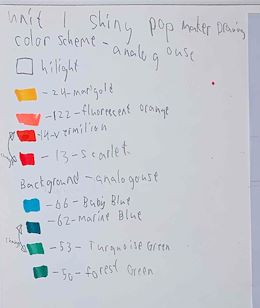 unit 1 shiny pop maker Drawing
color scheme - analogouse
hilight
-24-marigold
-122-fluorescent orange
-14-vermilion
-13-scarlet
Background-analogouse
-66-Baby Blue
-62-marine Blue
-53-Turquoise Green
-50-forest Green